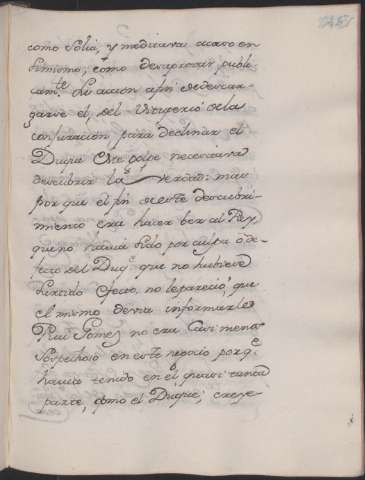 como solia, y meditava acaso en
si mismo, como desaprovar publi-
camte. la accion a fin de descar-
garse el, del Vituperio de la
conjuracion para declinar el
Duque este golpe necesitava
descubrir la verdad: mas
por que el fin de este descubri-
miento era hacer ber al Rey,
que no havia sido por culpa ó de-
fecto del Duqe. que no hubiese
surtido efecto, no le parecio, que
el mismo devia informarle;
Rui Gomez no era casi menos
sospechoso en este negocio porqe.
havia tenido en el quasi tanta
parte, como el Duque; creye